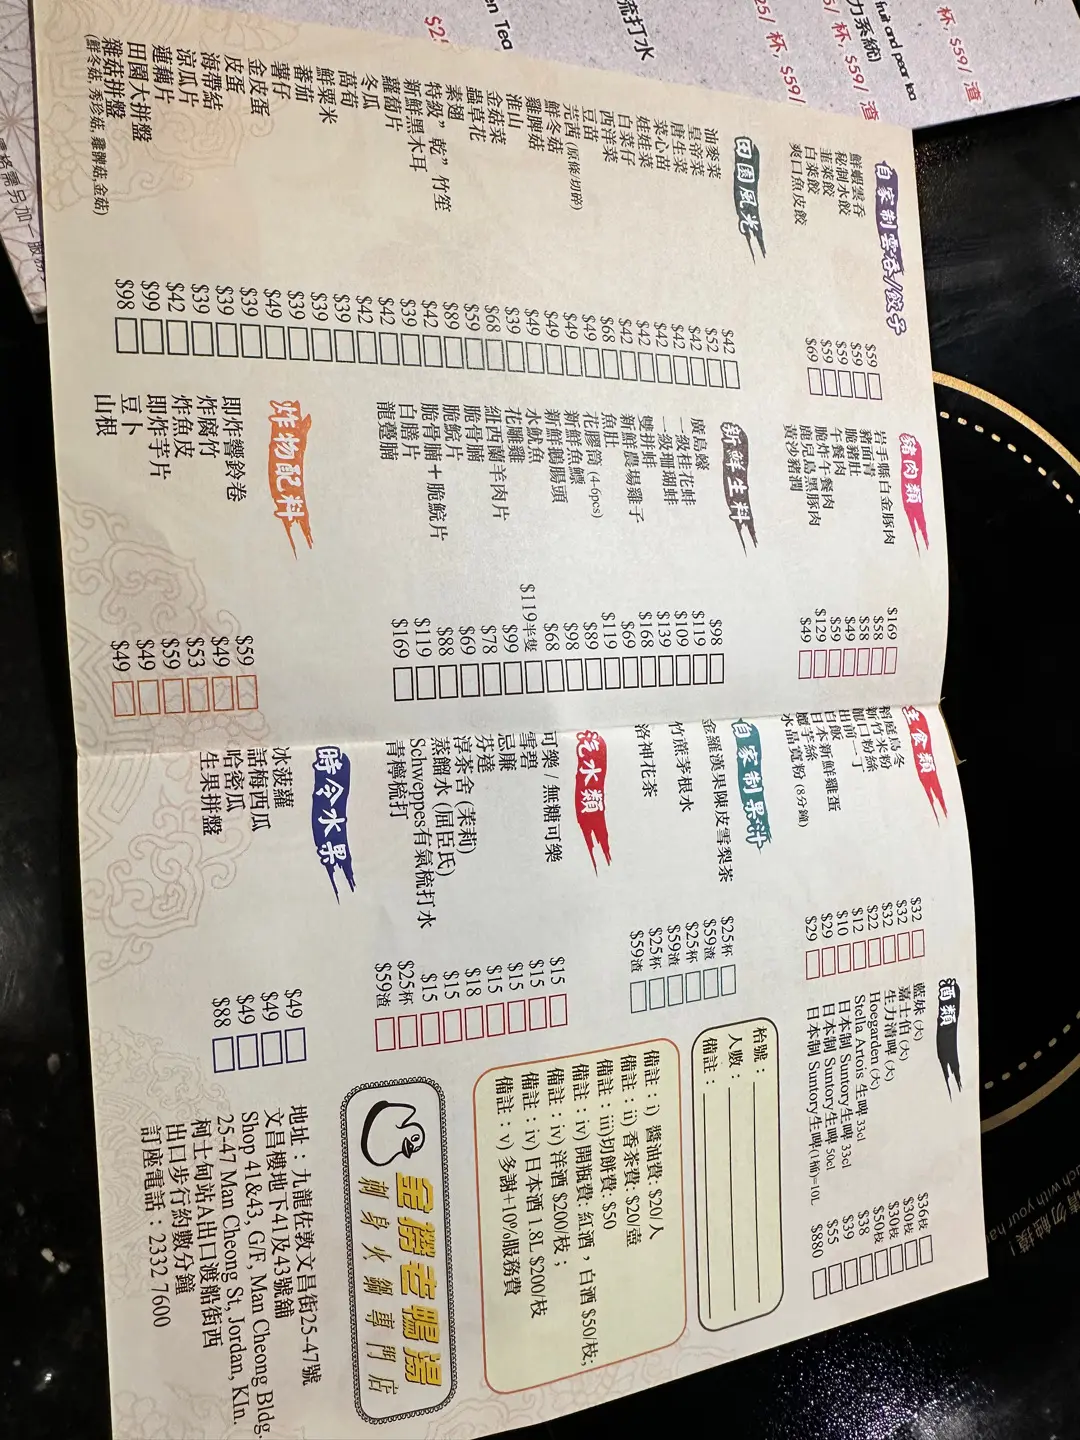 杯, $59/ 渣
fruit and pear tea
力系統)
5/ 杯, $59/ 渣
$25/ 杯, $59/
梳打水
en Tea
自家制雲吞/餃子
鮮蝦雲吞 $59
秘制水餃 $59
韮菜餃 $59
白菜餃 $59
爽口魚皮餃 $69
田園風光
油麥菜 $42
皇帝菜 $52
唐生菜 $42
菜心苗 $42
娃娃菜 $42
白菜仔 $42
西洋菜 $42
豆苗 $68
芫茜 (原條/切碎) $49
鮮冬菇 $49
雞脾菇 $49
淮山 $49
金菇菜 $39
蟲草花 $68
素翅 $59
特級"乾"竹笙 $89
新鮮黑木耳 $42
蘿蔔片 $39
冬瓜 $42
萵荀 $42
鮮粟米 $39
蕃茄 $39
薯仔 $39
金皮蛋 $49
皮蛋 $39
海帶結 $39
涼瓜片 $39
蓮藕片 $42
田園大拼盤 $99
雜菇拼盤 $98
(鮮冬菇, 秀珍菇, 雞髀菇,金菇)
豬肉類
岩手縣白金豚肉 $169
豬面青 $58
脆豬肚 $58
午餐肉 $49
脆炸午餐肉 $59
鹿兒島黑豚肉 $129
黃沙豬潤 $49
新鮮生料
廣島蠔 $98
一級桂花蚌 $119
一級珊瑚蚌 $109
雙拼蚌 $139
新鮮農場雞子 $168
魚肚 $69
花膠筒 (4-6pcs) $119
新鮮魚鰾 $89
新鮮鵝腸頭 $98
水魷魚 $68
花雕雞 $119半隻
紐西蘭羊肉片 $99
脆骨腩 $78
脆鯇片 $69
脆骨腩+脆鯇片 $88
白鱔片 $119
龍躉腩 $169
炸物配料
即炸響鈴卷 $59
炸腐竹 $49
炸魚皮 $53
即炸芋片 $59
豆卜 $49
山根 $49
主食類
稻庭烏冬 $32
新竹米粉 $32
龍口粉絲 $32
出前一丁 $22
白飯 $12
日本新鮮雞蛋 $10
魔芋絲 $29
水晶寬粉 (8分鐘) $29
自家制果汁
金羅漢果陳皮雪梨茶 $25杯
$59渣
竹蔗茅根水 $25杯
$59渣
洛神花茶 $25杯
$59渣
汽水類
可樂 / 無糖可樂 $15
雪碧 $15
忌廉 $15
芬達 $15
淳茶舍 (茉莉) $18
蒸餾水 (屈臣氏) $15
Schweppes有氣梳打水 $15
青檸梳打 $25杯
$59渣
時令水果
冰菠蘿 $49
話梅西瓜 $49
哈密瓜 $49
生果拼盤 $88
酒類
藍妹 (大) $36枝
嘉士伯 (大) $30枝
生力清啤 (大) $30枝
Hoegarden (大) $50枝
Stella Artois 生啤 33cl $38
日本制 Suntory生啤 33cl $39
日本制 Suntory生啤 50cl $55
日本制 Suntory生啤(1桶)=10L $880
枱號：
人數：
備註：
備註：i) 醬油費: $20/人
備註：ii) 香茶費: $20/壺
備註：iii)切餅費: $50
備註：iv) 開瓶費: 紅酒，白酒 $50/枝;
備註：iv) 洋酒 $200/枝；
備註：iv) 日本酒 1.8L $200/枝
備註：v) 多謝+10%服務費
金榜老鴨湯
刺身火鍋專門店
地址：九龍佐敦文昌街25-47號
文昌樓地下41及43號舖
Shop 41&43, G/F, Man Cheong Bldg.
25-47 Man Cheong St, Jordan, Kln.
柯士甸站A出口渡船街西
出口步行約數分鐘
訂座電話：2332 7600